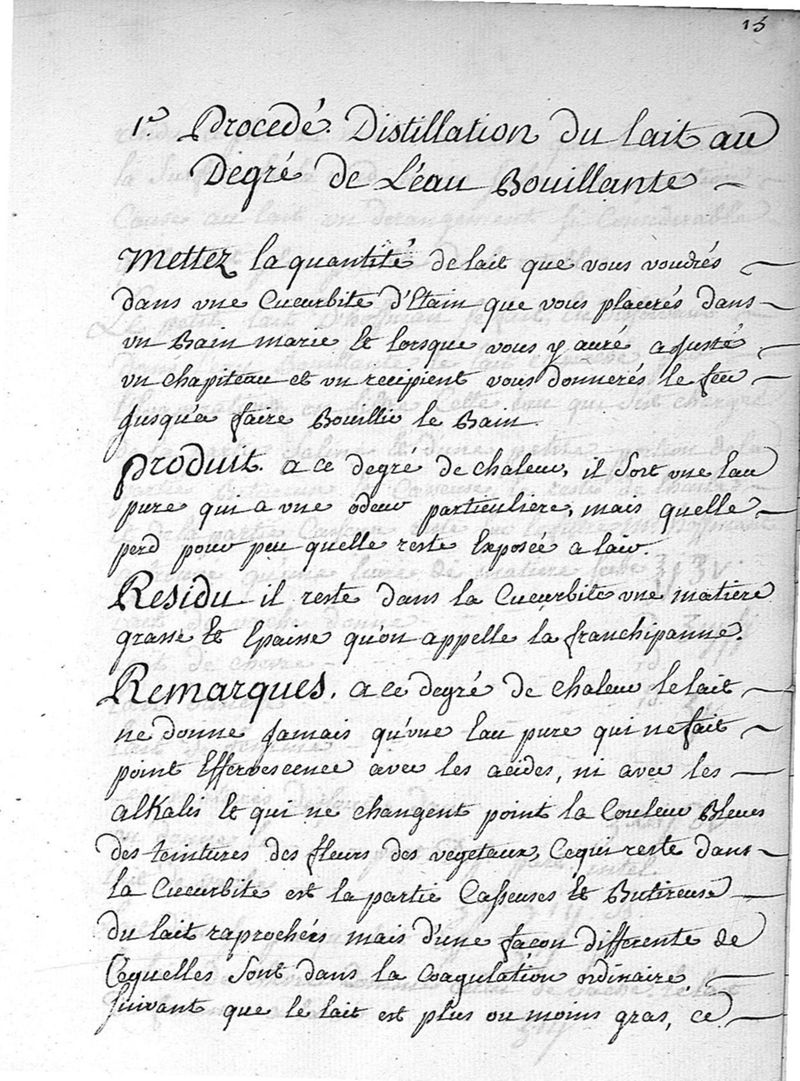 15
1.er Procedé. Distillation du lait au
Degré de L'éau Bouillante
Mettez la quantité de lait que vous voudrés
dans vne Cucurbite d'Etain que vous placerés dans
vn Bain marie Et lorsque vous y auré ajusté
vn chapiteau et vn recipient vous donnerés le feu
Jusqu'a faire Bouillir le Bain.
produit. a ce degré de chaleur, il Sort vne Eau
pure qui a vne odeur particuliere, mais quelle
perd pour peu quelle reste Exposée a lair.
Residu il reste dans la Cucurbite vne matiere
grasse Et Epaisse quon appelle la franchipanne.
Remarques. a ce degré de chaleur le lait
ne donne Jamais qu'vne Eau pure qui ne fait
point Effervescence avec les acides, ni avec les
alKalis Et qui ne changent point la Couleur Bleues
des teintures des fleurs des vegetaux, Cequi reste dans
la Cucurbite est la partie Casseuses Et Butireuse
du lait raprochérs mais d'une façon differente de
Cequelles Sont dans la Coagulation ordinaire
Suivant que le lait est plus ou moins gras, ce